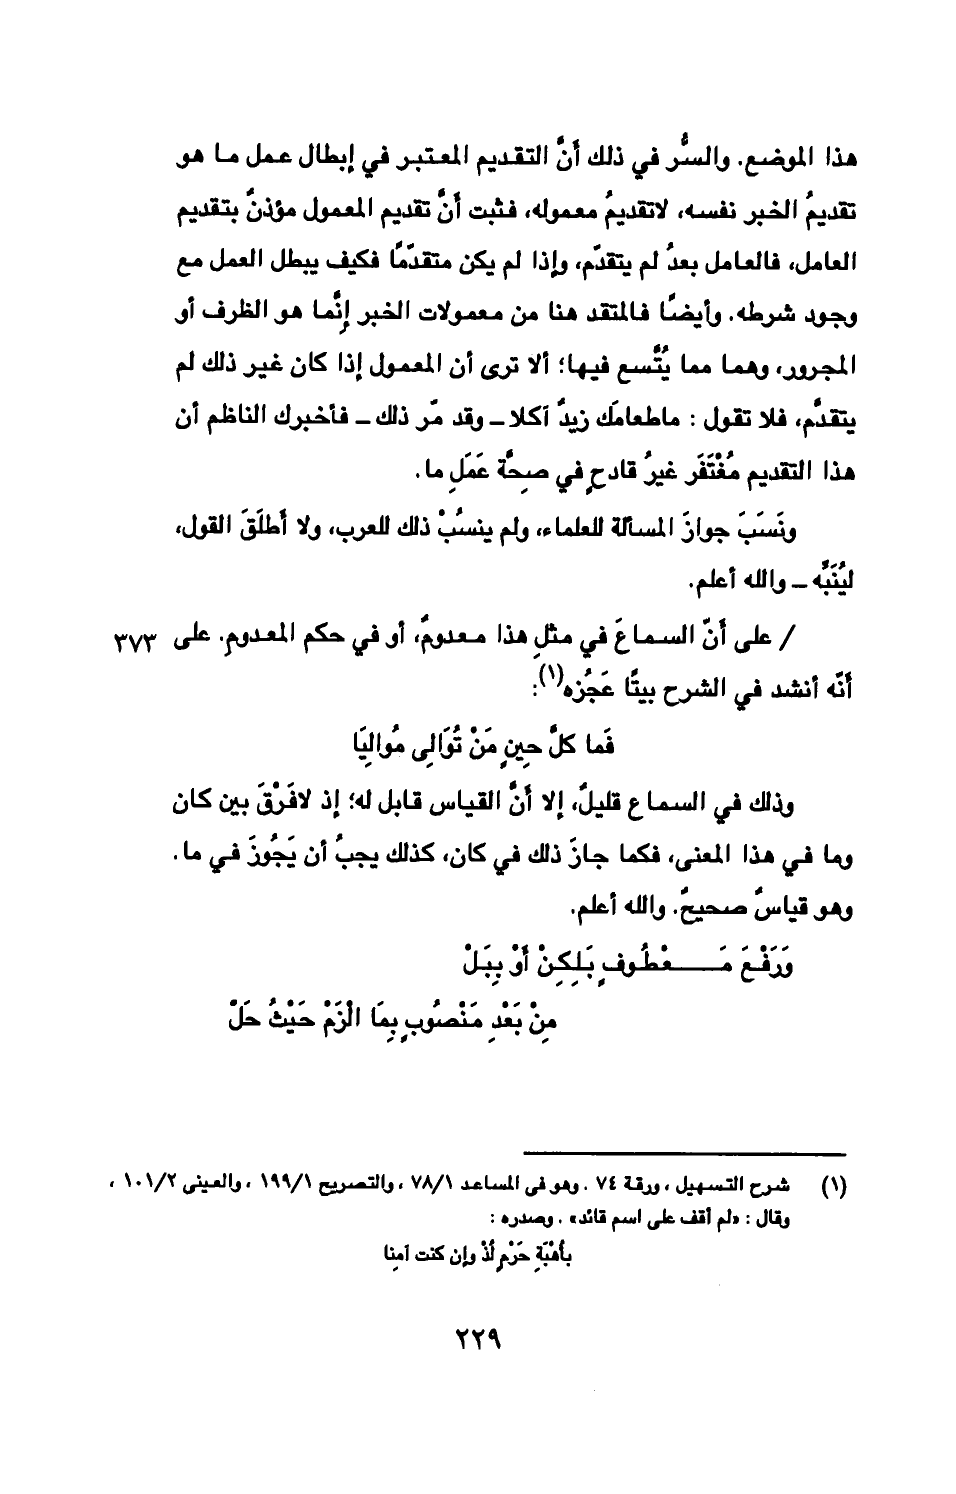 هذا الموضع. والسُّر في ذلك أنَّ التقديم المعتبر في إبطال عمل ما هو
تقديمُ الخبر نفسه، لاتقديمُ معموله، فثبت أنَّ تقديم المعمول مؤذنٌ بتقديم
العامل، فالعامل بعدُ لم يتقدّم، وإذا لم يكن متقدّمًا فكيف يبطل العمل مع
وجود شرطه. وأيضًا فالمتقد هنا من معمولات الخبر إنَّما هو الظرف أو
المجرور، وهما مما يُتَّسع فيها؛ ألا ترى أن المعمول إذا كان غير ذلك لم
يتقدَّم، فلا تقول : ماطعامَك زيدٌ آكلا ـ وقد مّر ذلك ـ فأخبرك الناظم أن
هذا التقديم مُغْتَفَر غيرُ قادحٍ في صحِةَّ عَمَلِ ما.
ونَسَبَ جوازَ المسألة للعلماء، ولم ينسُبْ ذلك للعرب، ولا أَطلَقَ القول،
ليُنَبَّه ـ والله أعلم.
/ على أَنّ السماعَ في مثلِ هذا معدومٌ، أو في حكم المعدومِ. على ٣٧٣
أَنّه أنشد في الشرح بيتًا عَجُزه(١):
فَما كلَّ حِينٍ مَنْ تُوَالِى مُوالِيَا
وذلك في السماع قليلٌ، إلا أنَّ القياس قابل له؛ إذ لافَرْقَ بين كان
وما في هذا المعنى، فكما جازَ ذلك في كان، كذلك يجبُ أن يَجُوزَ في ما.
وهو قياسٌ صحيحٌ. والله أعلم.
وَرَفْعَ مَـــعْطُوفٍ بَلِكِنْ أَوْ بِبَلْ
مِنْ بَعْدِ مَنْصُوبٍ بِمَا الْزَمْ حَيْثُ حَلّْ
(١) شرح التسهيل ، ورقة ٧٤ . وهو فى المساعد ٧٨/١ ، والتصريح ١٩٩/١ ، والعينى ١٠١/٢ ،
وقال : «لم أقف على اسم قائد» . وصدره :
بأهْبَةِ حَزْمٍ لُذْ وإن كنت آمنِا
٢٢٩